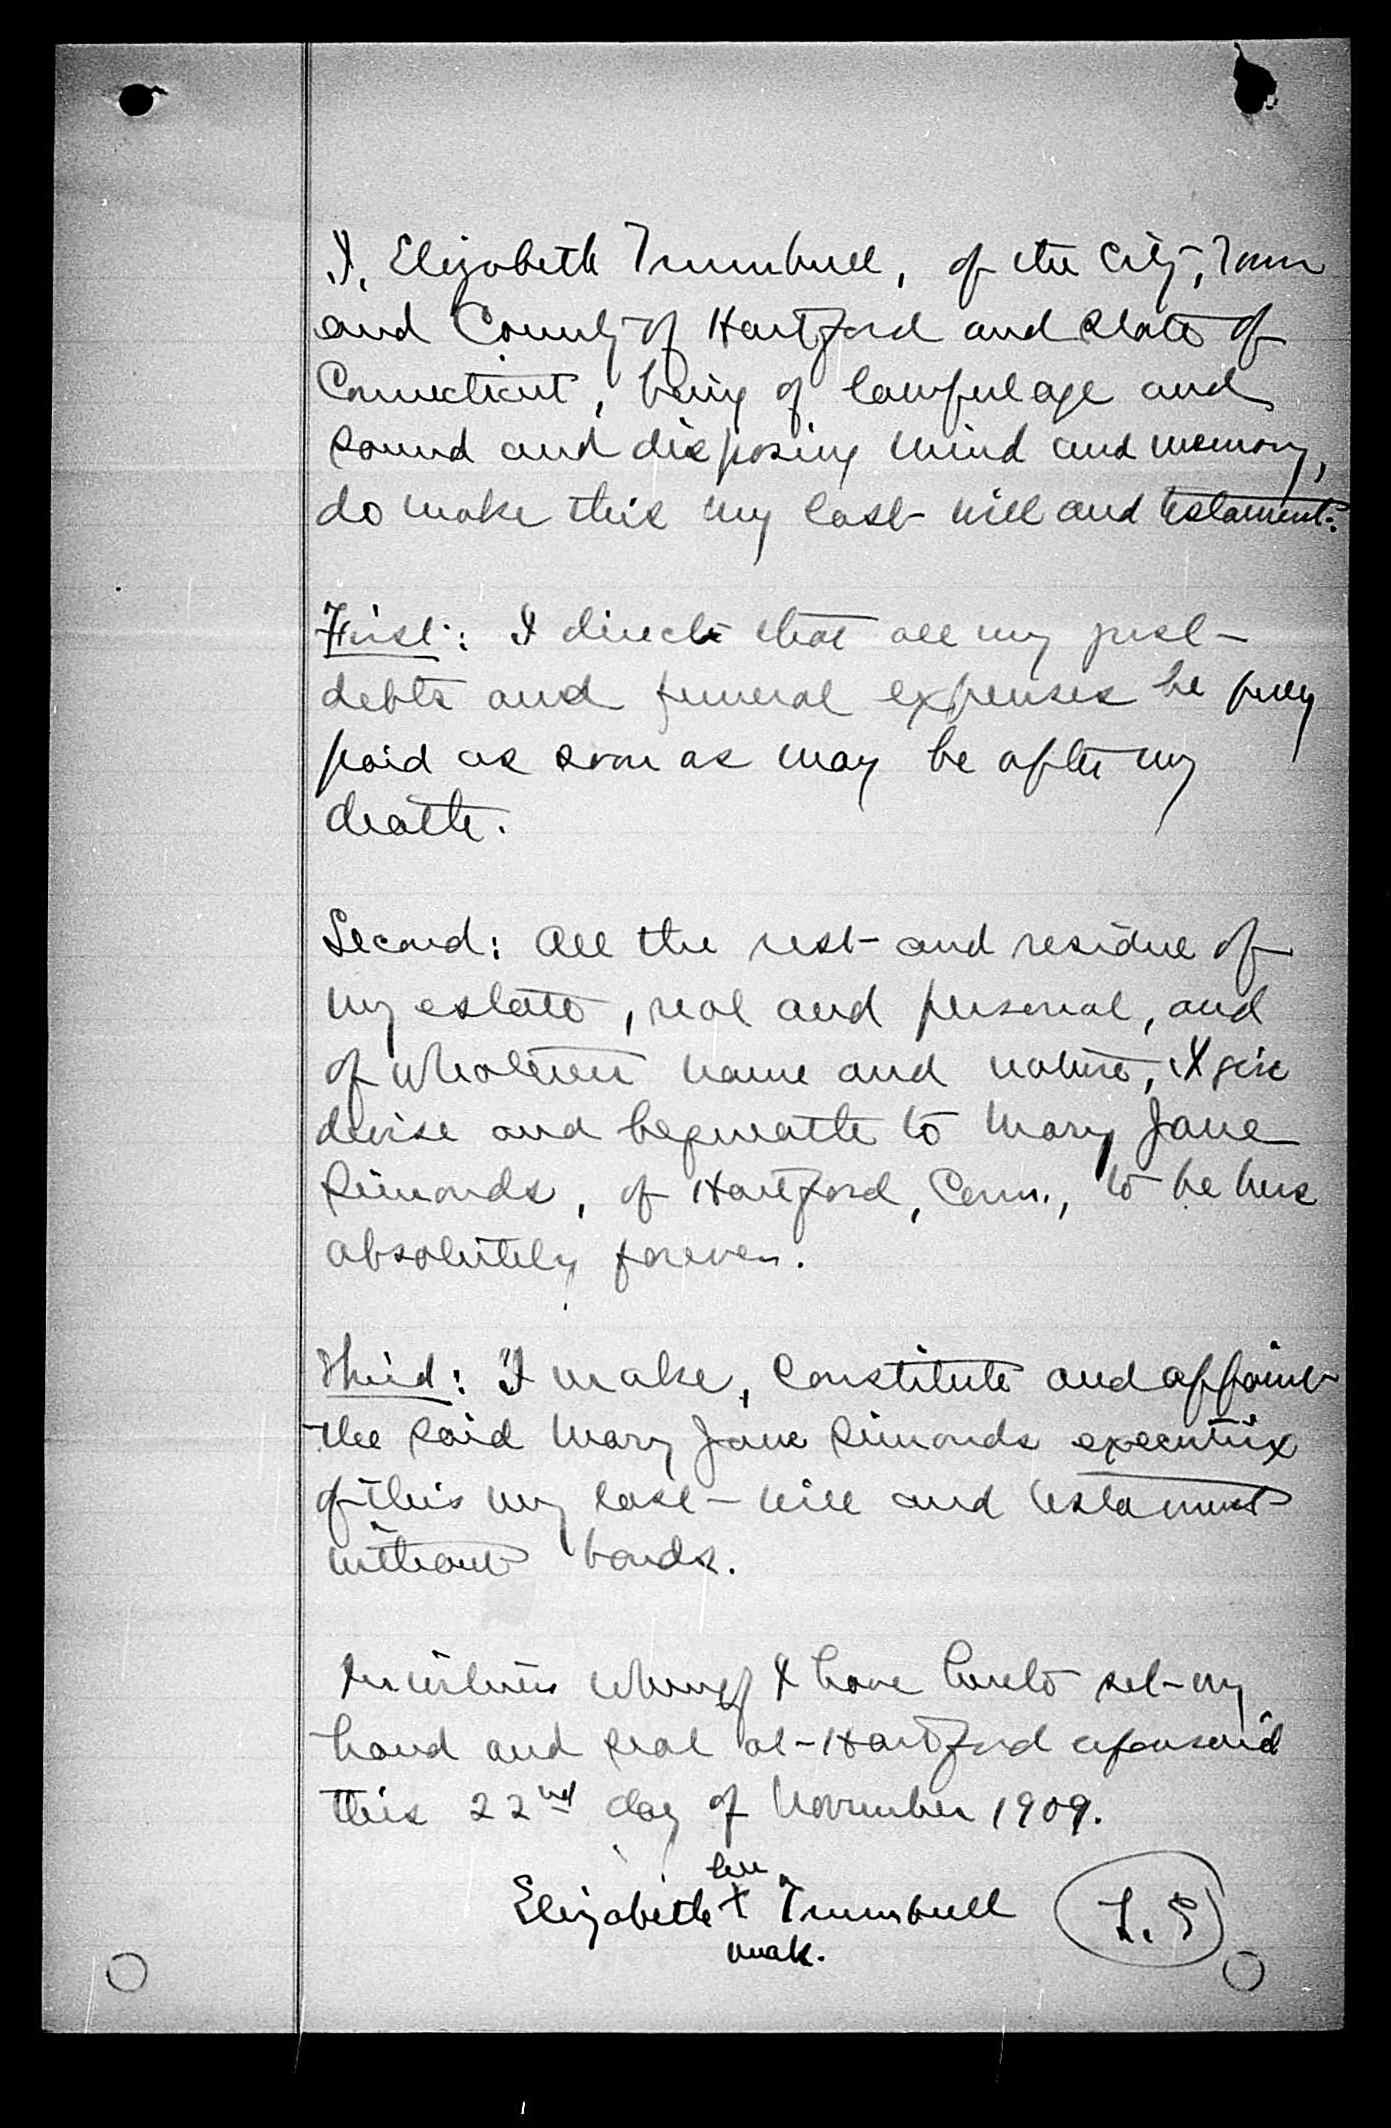 I, Elizabeth Trumbull, of the City, Town
and County of Hartford and State of
Connecticut, being of lawful age and
sound and disposing mind and memory,
do make this my last will and testament:
First: I direct that all my just
debts and funeral expenses be fully
paid as soon as may be after my
death.
Second: All the rest and residue of
my estate, real and personal, and
of whatever name and nature, I give
devise and bequeath to Mary Jane
Simonds, of Hartford, Conn., to be hers
absolutely forever.
Third: I make, constitute and appoint
the said Mary Jane Simonds executrix
of this my last will and testament
without bonds.
In witness whereof I have hereto set my
hand and seal at Hartford aforesaid
this 22nd day of November 1909.
her
Elizabeth X Trumbull L.S
mark.